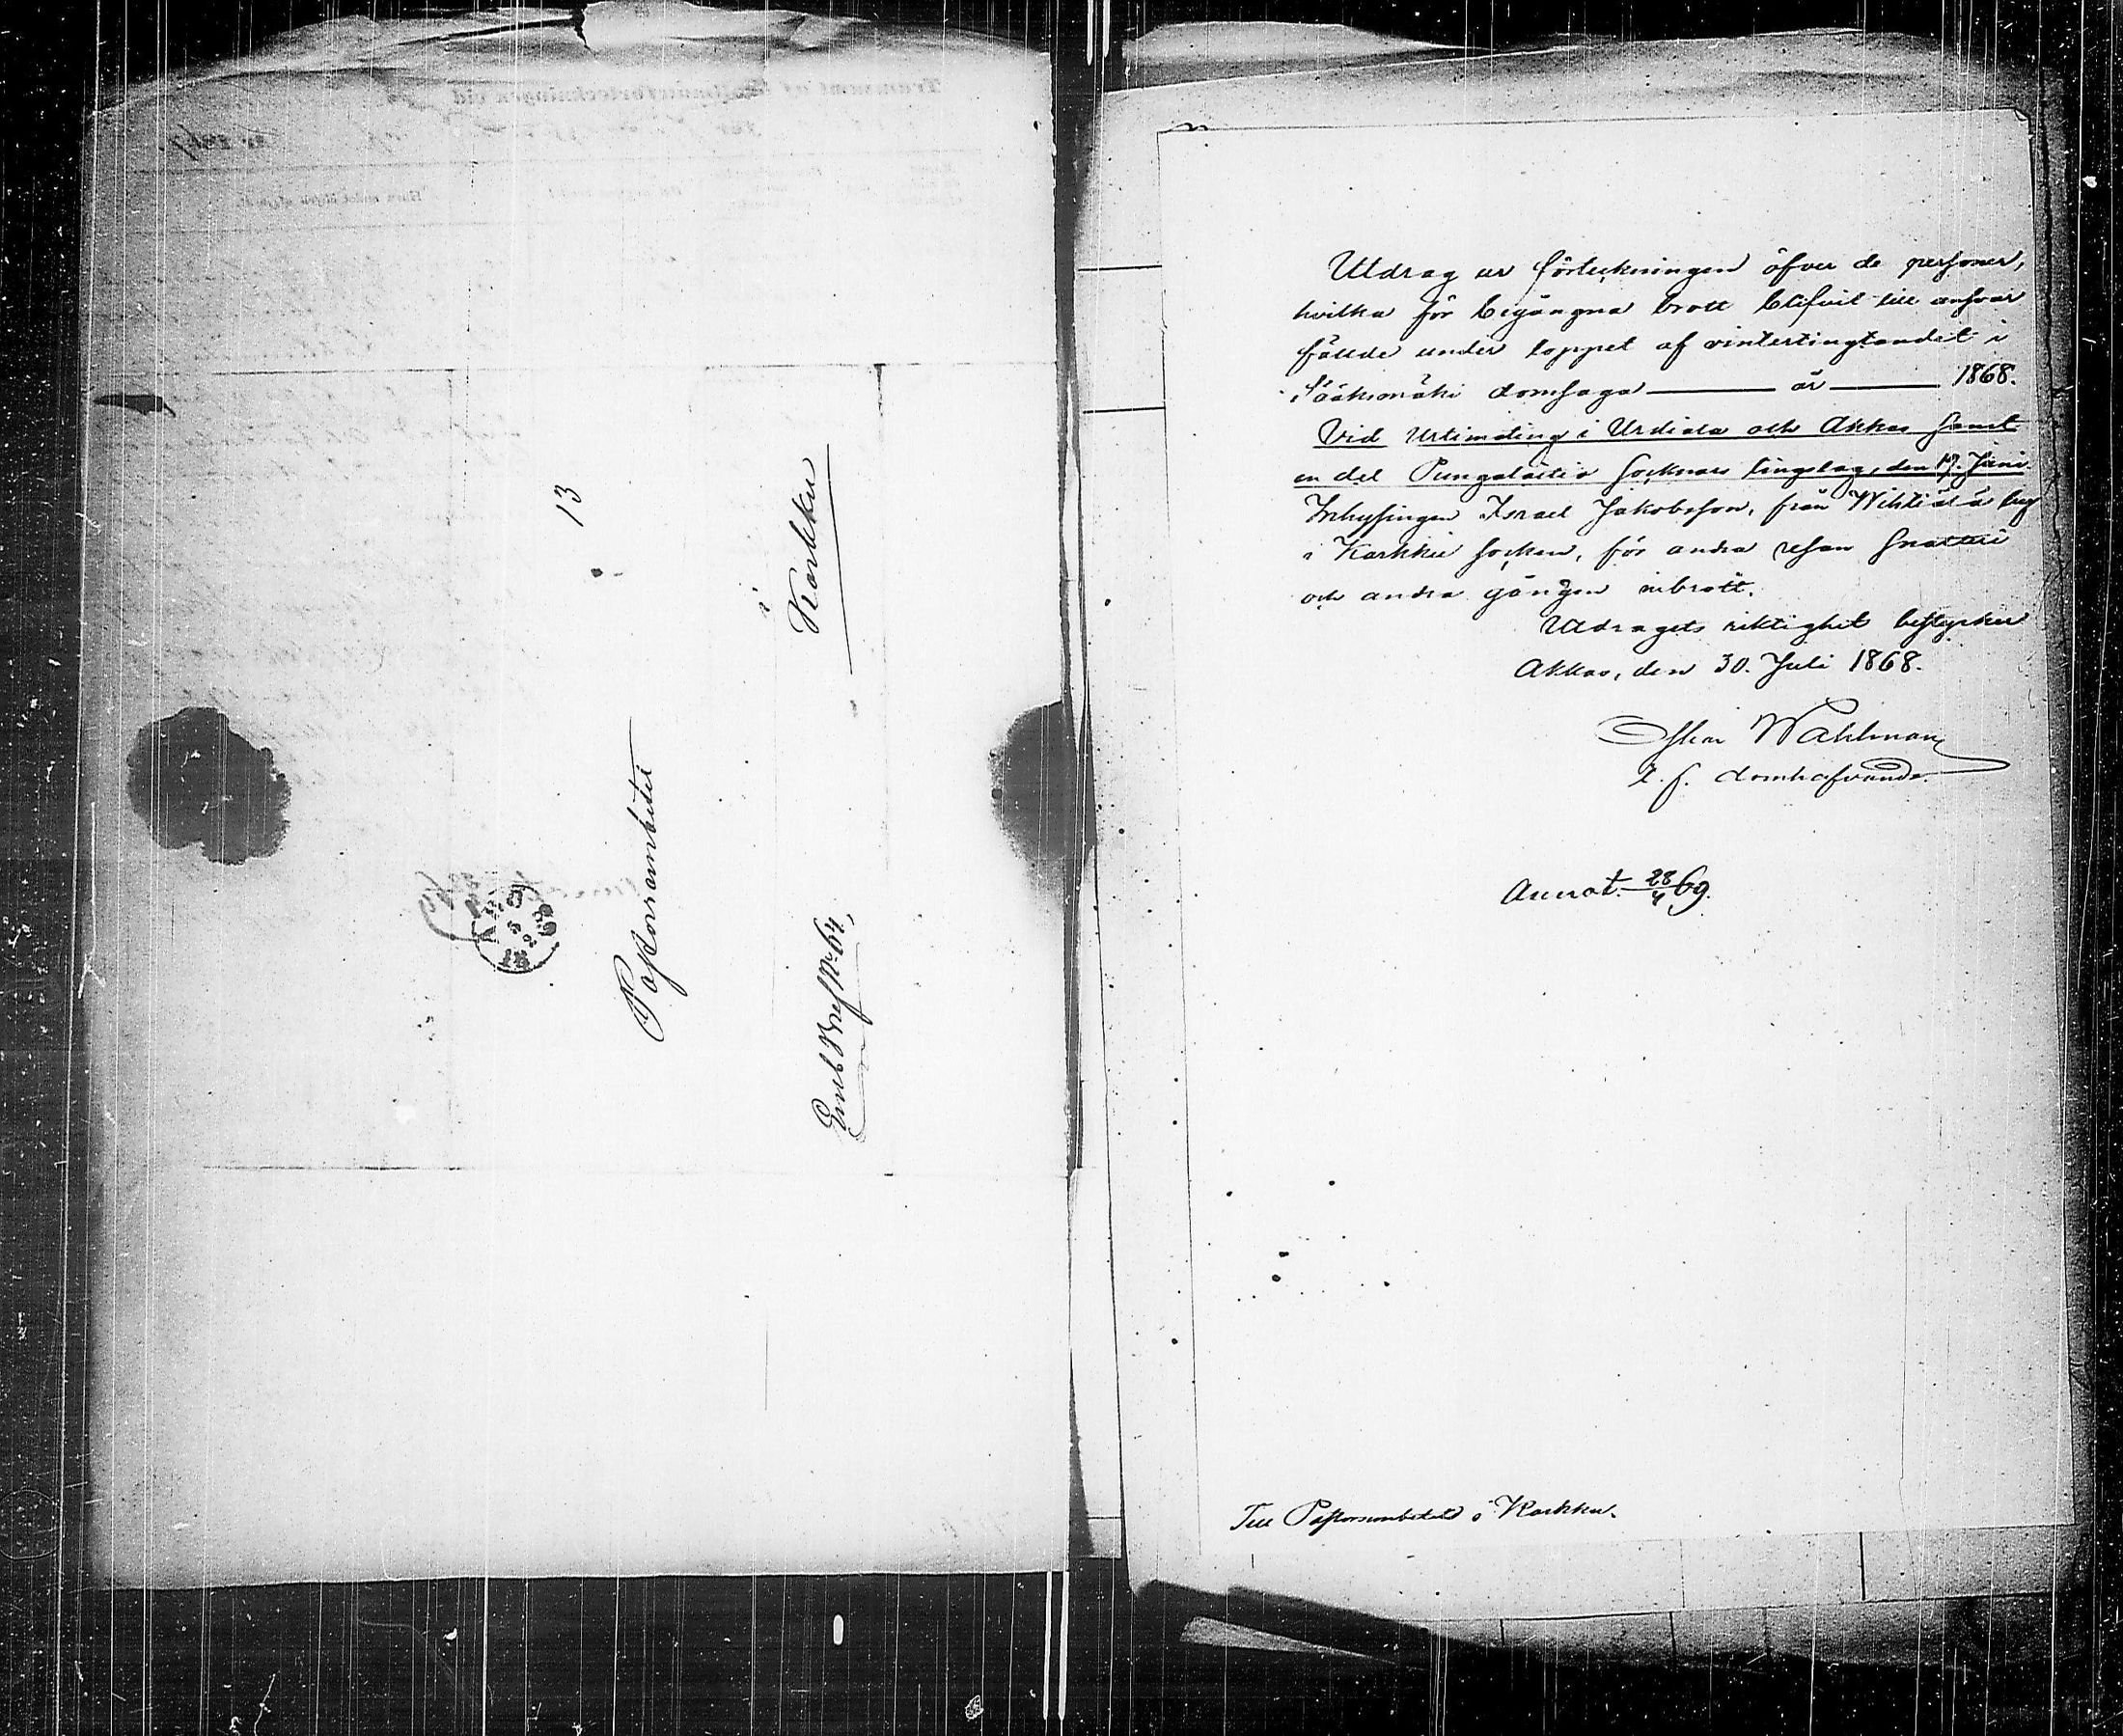 13
Pastorsembetet
i
Karkku
Enl. Bref № 64,
Utdrag ur förteckningen öfver de personer,
hvilka för begångna brott blifvit till ansvar
fällde under loppet af vintertingtandet i
Sääksmäki domsaga ——— år ——— 1868.
Vid Urtimating i Urdiala och Akkas samt
en del Pungalaitio socknars tingslag, den 17. Juni.
Inhysingen Israel Jakobsson, från Wihtiälä by
i Karkku socken, för andra resan snatteri
och andra gången inbrott.
Utdragets riktighet bestyrker
Akkas, den 30. Juli 1868.
Oskar Wahlman
t. f. domhafvande.
Annot. 28/4 69.
Till Pastorsembetet i Karkku.